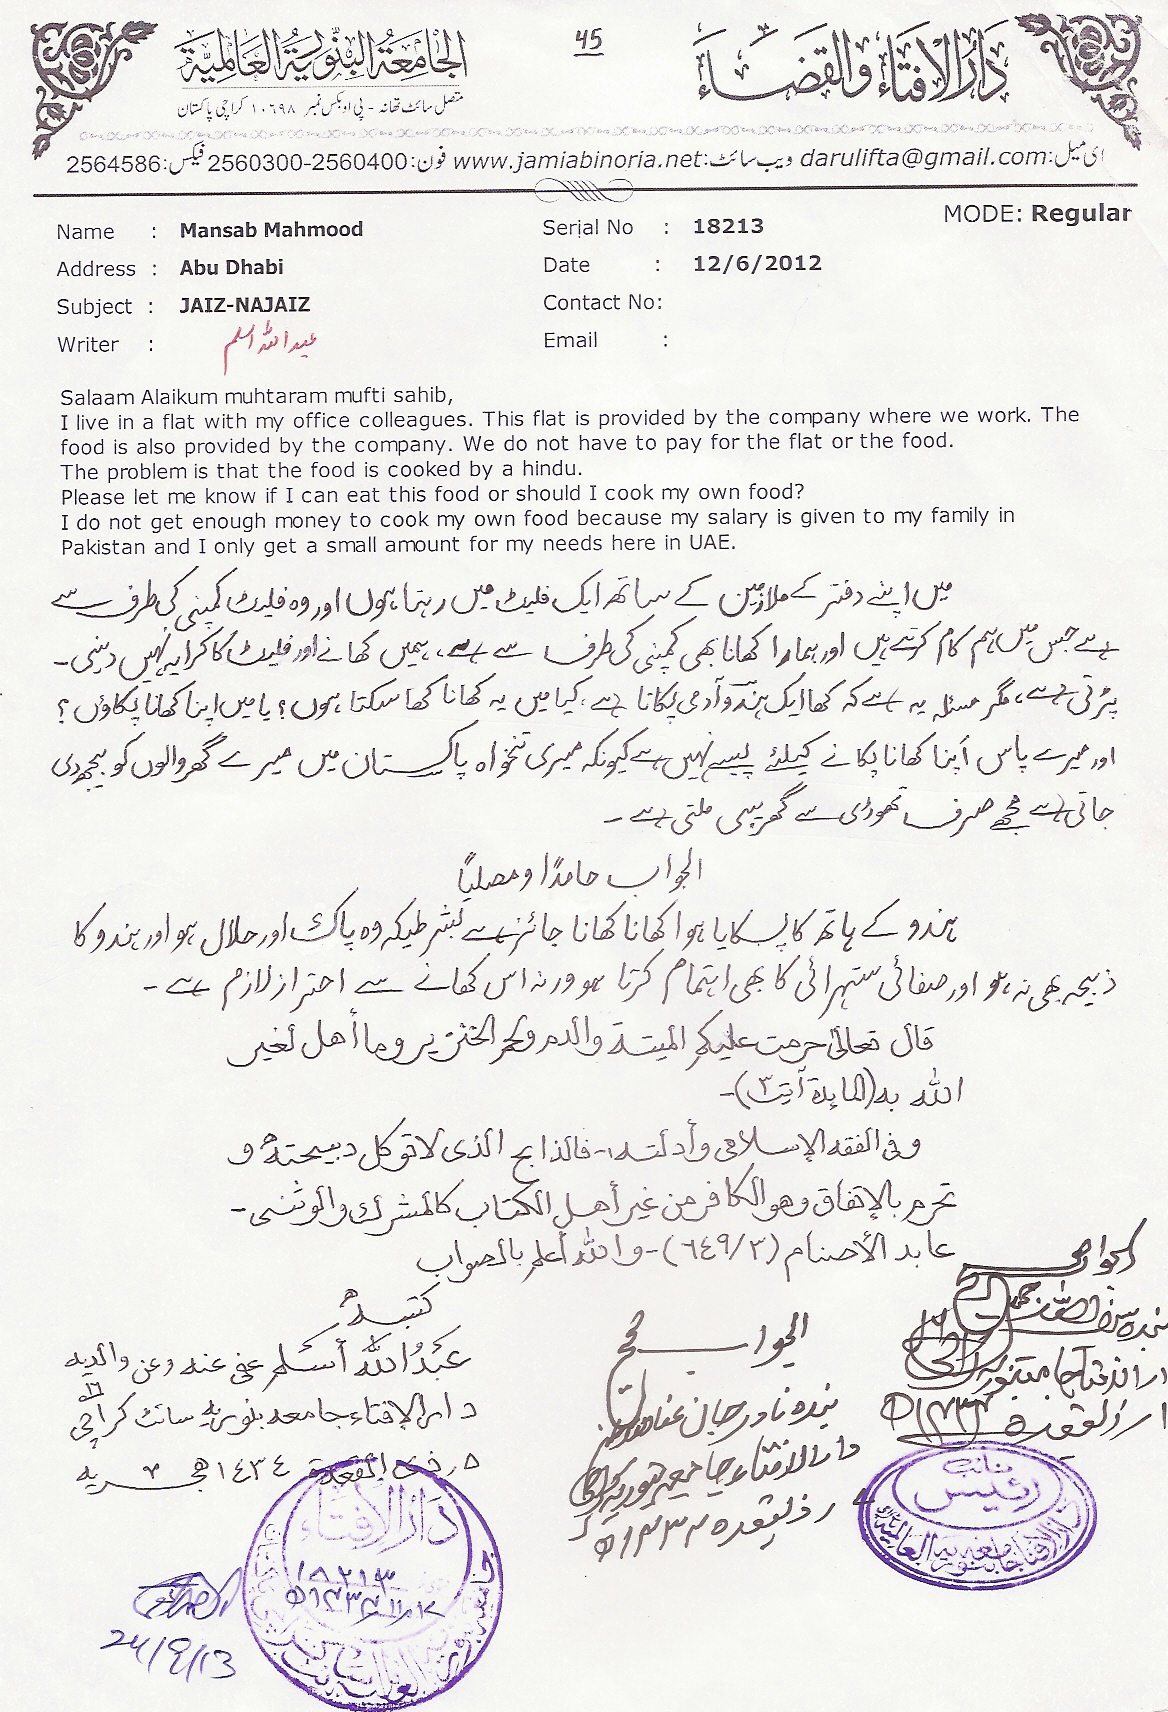 دار الافتاء والقضاء
45
الجامعة البنورية العالمية
متصل سائٹ تھانہ - پی او بکس نمبر ۱۰۶۹۸ کراچی پاکستان
ای میل: darulifta@gmail.com ویب سائٹ: www.jamiabinoria.net فون: 2560300-2560400 فیکس: 2564586
MODE: Regular
Name : Mansab Mahmood Serial No : 18213
Address : Abu Dhabi Date : 12/6/2012
Subject : JAIZ-NAJAIZ Contact No:
Writer : عبداللہ اسلم Email :
Salaam Alaikum muhtaram mufti sahib,
I live in a flat with my office colleagues. This flat is provided by the company where we work. The
food is also provided by the company. We do not have to pay for the flat or the food.
The problem is that the food is cooked by a hindu.
Please let me know if I can eat this food or should I cook my own food?
I do not get enough money to cook my own food because my salary is given to my family in
Pakistan and I only get a small amount for my needs here in UAE.
میں اپنے دفتر کے ملازمین کے ساتھ ایک فلیٹ میں رہتا ہوں اور وہ فلیٹ کمپنی کی طرف سے
ہے جس میں ہم کام کرتے ہیں اور ہمارا کھانا بھی کمپنی کی طرف سے ہے، ہمیں کھانے اور فلیٹ کا کرایہ نہیں دینی۔
پڑتی ہے، مگر مسئلہ یہ ہے کہ کھا ایک ہندو آدمی پکاتا ہے، کیا میں یہ کھانا کھا سکتا ہوں؟ یا میں اپنا کھانا پکاؤں؟
اور میرے پاس اپنا کھانا پکانے کیلئے پیسے نہیں ہے کیونکہ میری تنخواہ پاکستان میں میرے گھر والوں کو بھیجدی
جاتی ہے مجھے صرف تھوڑی سے ملتی ہے۔
الجواب حامدًا ومصلیًا
ہندو کے ہاتھ کا پکایا ہوا کھانا کھانا جائز ہے بشرطیکہ وہ پاک اور حلال ہو اور ہندو کا
ذبیحہ بھی نہ ہو اور صفائی ستہرائی کا بھی اہتمام کرتا ہو ورنہ اس کھانے سے احتراز لازم ہے۔
قال تعالیٰ حرمت علیکم المیتة والدم ولحم الخنزیر وما أهل لغیر
الله به (المایدة آیت ۳)۔
وفی الفقه الإسلامی وأدلته :- فالذابح الذی لا تؤکل ذبیحته و
تحرم بالإتفاق وهو الکافر من غیر أهل الکتاب کالمشرك والوثنی۔
عابد الأصنام (۳/۶۴۹)۔ والله أعلم بالصواب
کتبہ
عبدُ اللہ أسلم عفی عنه وعن والدیه
دار الإفتاء جامعہ بنوریہ سائٹ کراچی ۱۶
۵ ذی القعدة ۱۴۳۴ ھجریہ
الجواب صحیح
بندہ نادر جان عفا اللہ عنہ
دار الافتاء جامعہ بنوریہ کراچی
ذیقعدہ ۱۴۳۴ھ
الجواب صحیح
بندہ سیف اللہ جمیل
دار الافتاء جامعہ بنوریہ
ذوالقعدہ ۱۴۳۴ھ
نائب
رئیس
دار الافتاء جامعہ بنوریہ العالمیہ
دار الافتاء
۱۸۲۱۳
24/9/13